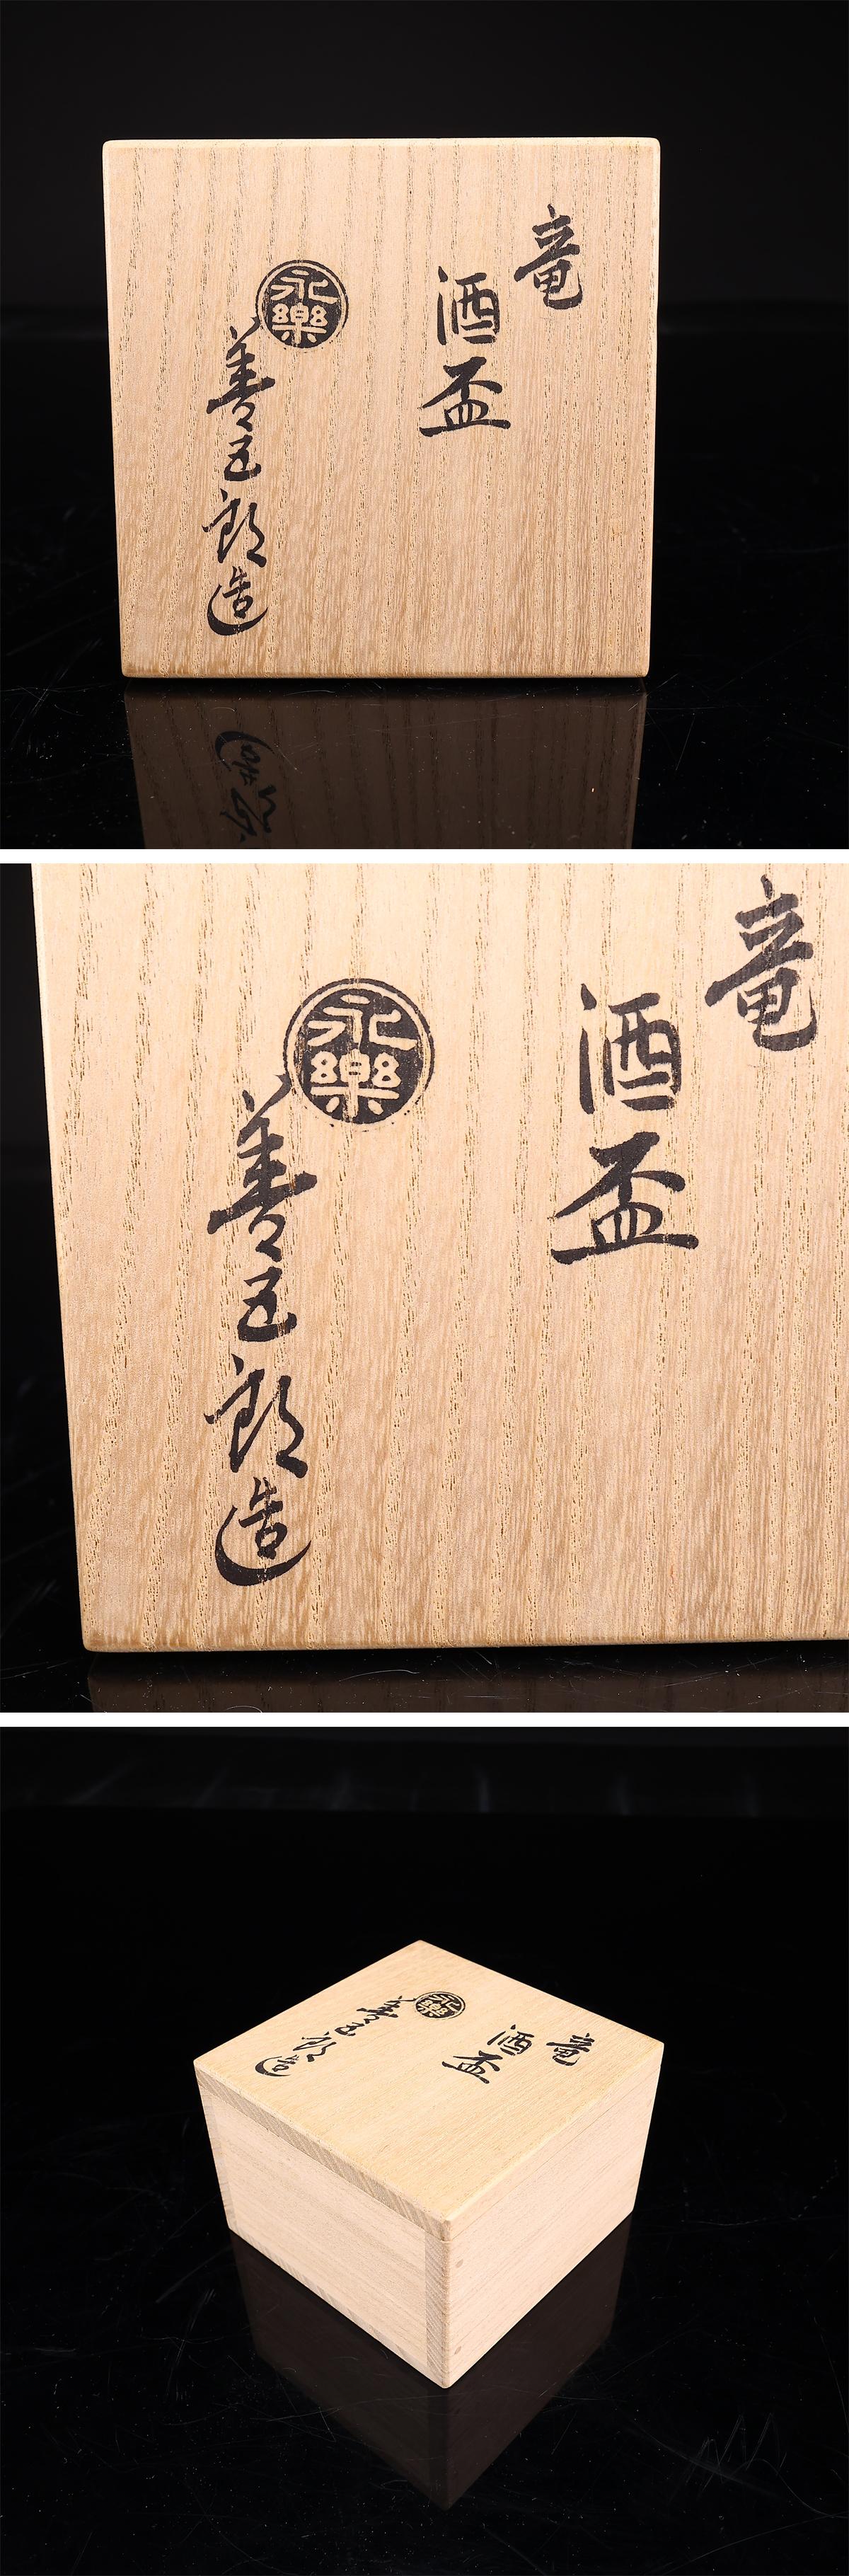 竜
酒盃
永樂
善五郎造
竜
酒盃
永樂
善五郎造
竜
酒盃
永樂
善五郎造